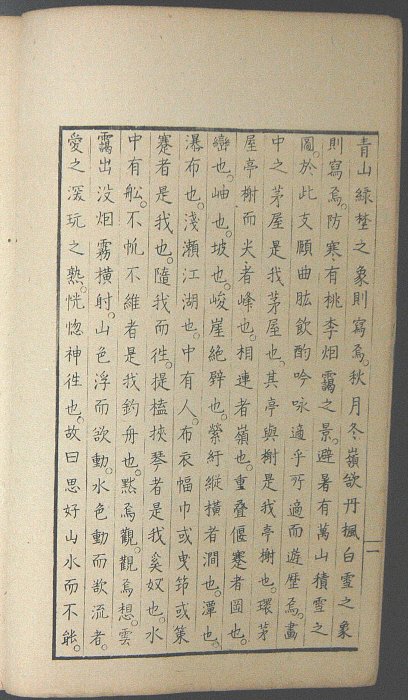 青山綠埜之象則寫焉。秋月冬嶺欲丹楓白雲之象
則寫焉。防寒有桃李烟靄之景。避暑有萬山積雪之
圖。於此支頤曲肱飲酌吟咏適乎所適而遊歷焉。畫
中之茅屋是我茅屋也。其亭與榭是我亭榭也。環茅
屋亭榭而尖者峰也。相連者嶺也。重疊偃蹇者岡也。
巒也。岫也。坡也。峻崖絕壁也。縈紆縱橫者澗也。潭也。
瀑布也。淺瀨江湖也。中有人。布衣幅巾或曳筇或策
蹇者是我也。隨我而徃。提榼挾琴者是我奚奴也。水
中有舩。不帆不維者是我釣舟也。默焉觀。觀焉想。雲
靄出没烟霧橫射。山色浮而欲動。水色動而欲流者。
愛之深玩之熟。恍惚神徃也。故曰思好山水而不能。
二